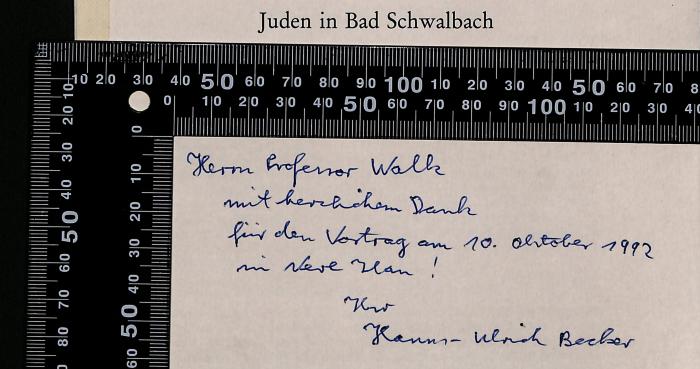 Juden in Bad Schwalbach
10 20 30 40 50 60 70 80 90 100 10 20 30 40 50 60 70
0 10 20 30 40 50 60 70 80 90 100 10 20 30
Herrn Professor Walk
mit herzlichem Dank
für den Vortrag am 10. Oktober 1992
in Neve Ilan !
Ihr
Hanns-Ulrich Becker
10 20 30 40 50 60 70 80
0 10 20 30 40 50 60